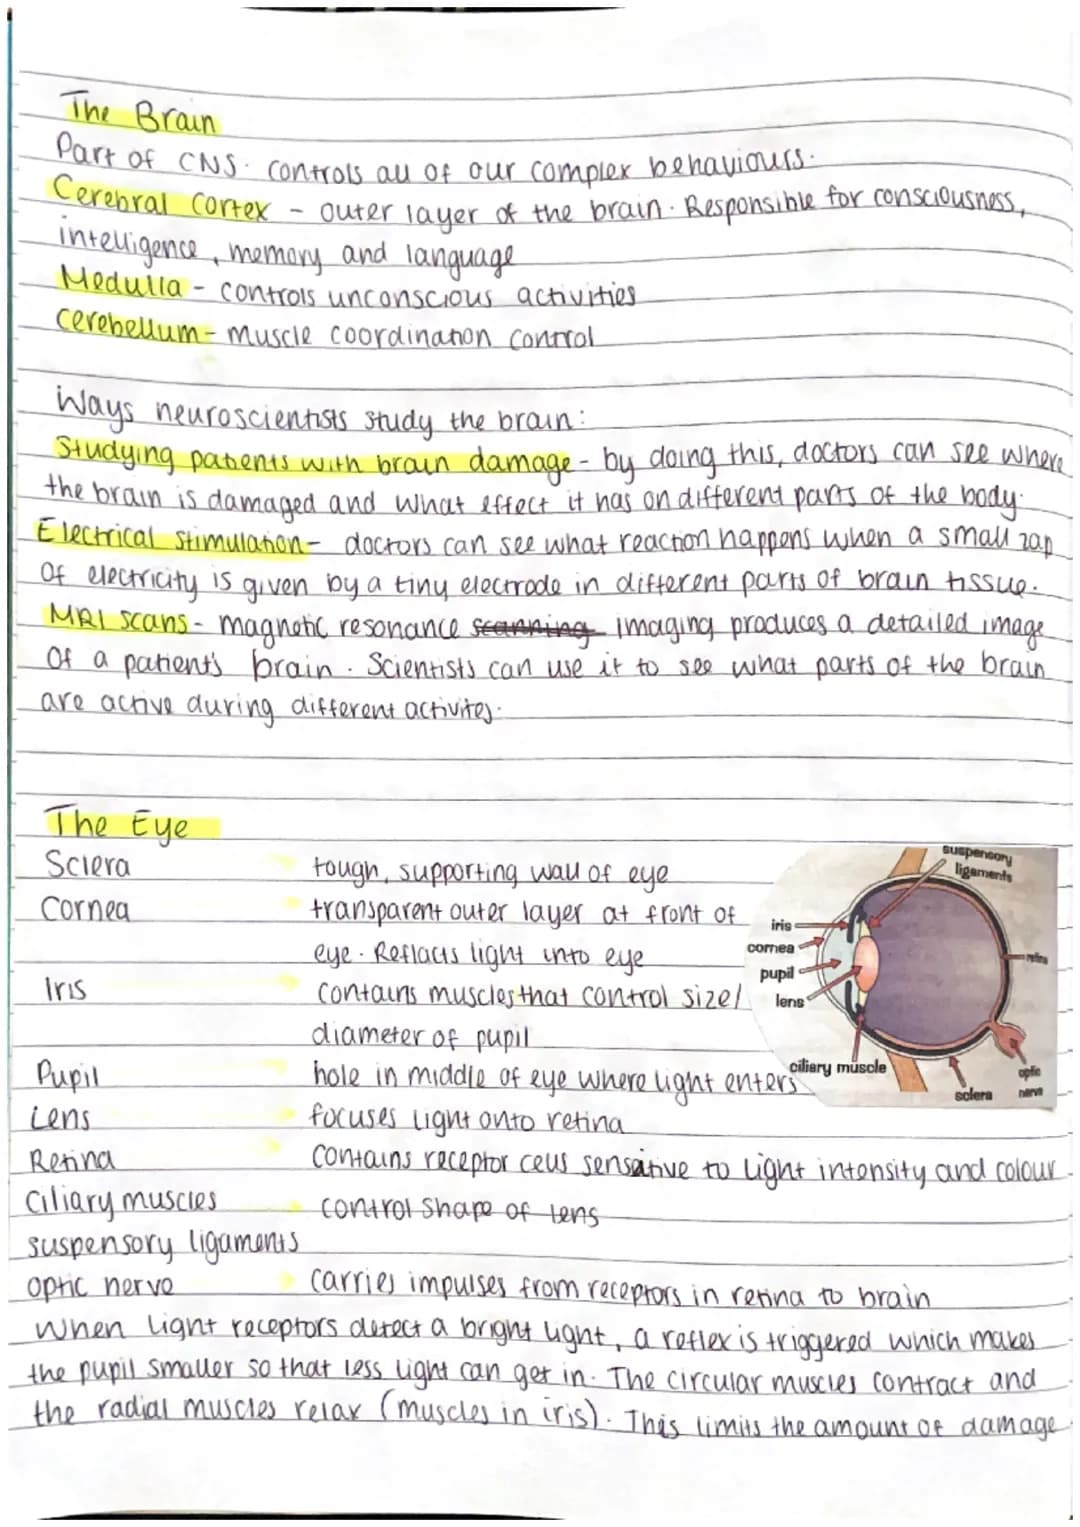 The Brain
Part of CNS. Controls all of our complex behaviours.
Cerebral Cortex - outer layer of the brain. Responsible for consciousness,
intelligence, memory and language
Medulla - controls unconscious activities
Cerebellum - muscle coordination control
Ways neuroscientists study the brain:
Studying patients with brain damage - by doing this, doctors can see where
the brain is damaged and what effect it has on different parts of the body.
Electrical stimulation - doctors can see what reaction happens when a small zap
of electricity is given by a tiny electrode in different parts of brain tissue.
MRI scans - magnetic resonance scanning imaging produces a detailed image
of a patient's brain. Scientists can use it to see what parts of the brain
are active during different activites.
The Eye
Sclera tough, supporting wall of eye
Cornea transparent outer layer at front of
eye. Reflacts light into eye
Iris contains muscles that control size/
diameter of pupil
Pupil hole in middle of eye where light enters
Lens focuses light onto retina
Retina contains receptor cells sensative to light intensity and colour
Ciliary muscles control shape of lens
suspensory ligaments
optic nerve carries impulses from receptors in retina to brain
When light receptors detect a bright light, a reflex is triggered which makes
the pupil smaller so that less light can get in. The circular muscles contract and
the radial muscles relax (muscles in iris). This limits the amount of damage
suspensory
ligaments
iris
cornea
pupil
lens
retina
ciliary muscle
sclera
optic
nerve